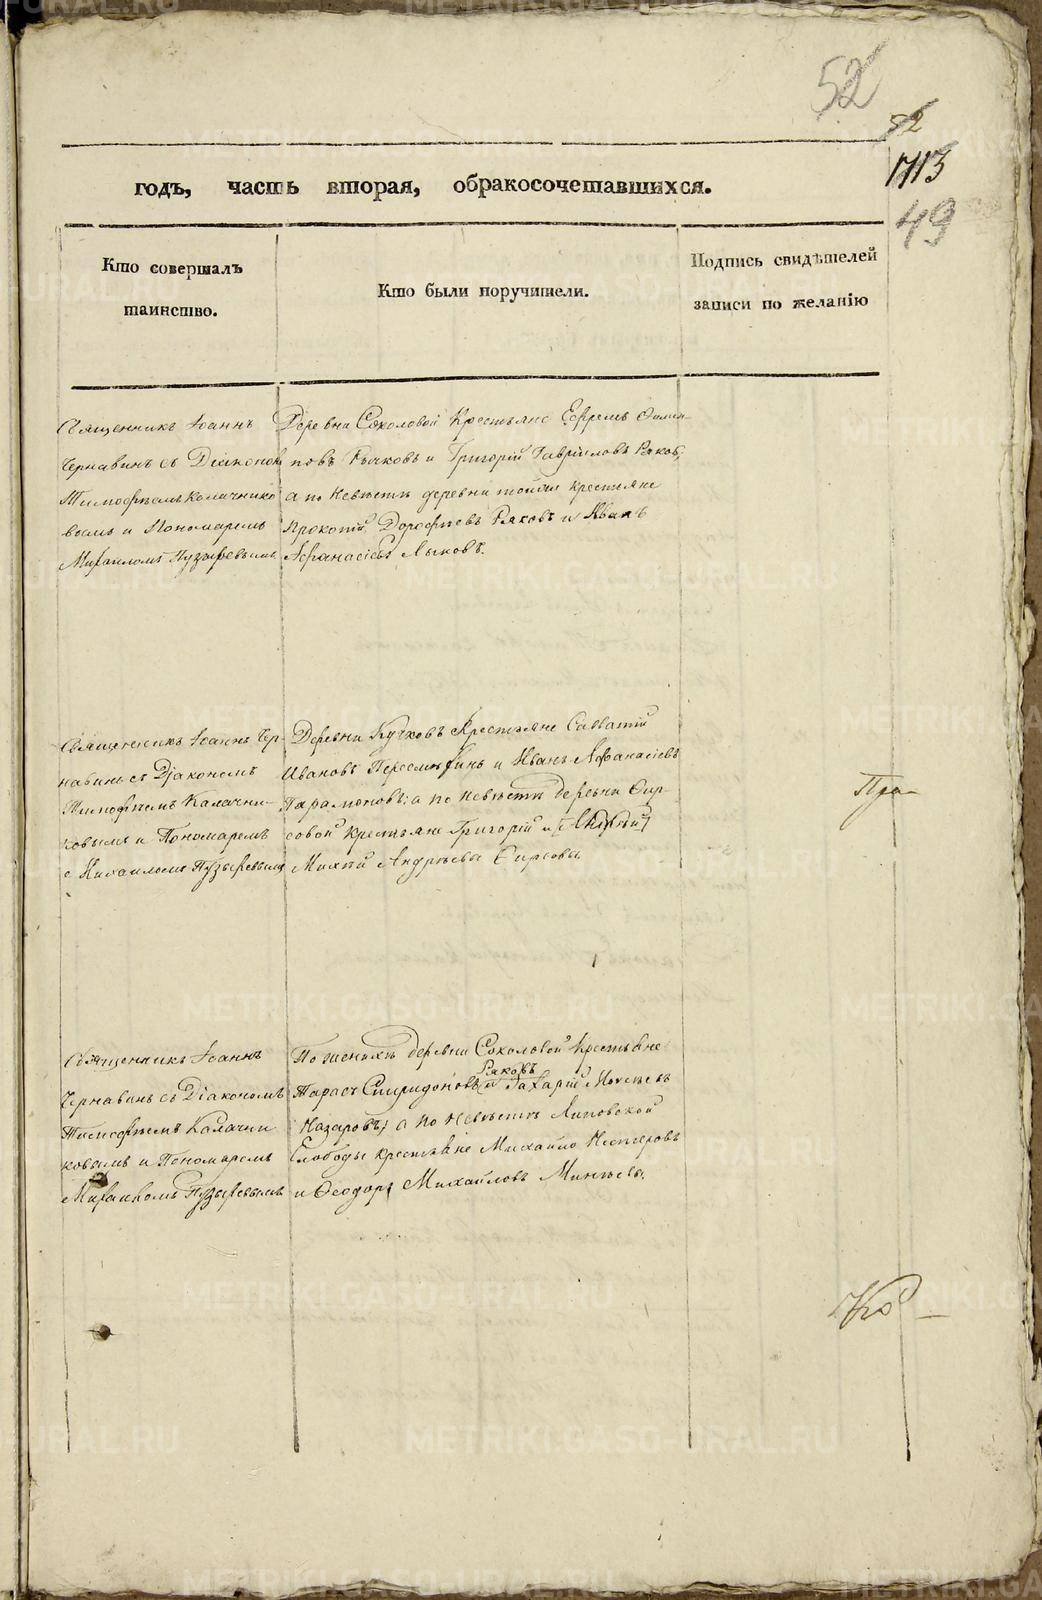 52
52
1713
49
годъ, часть вторая, обракосочетавшихся.
Кто совершалъ
таинство.
Кто были поручители.
Подпись свидѣтелей
записи по желанію
Священникъ Іоаннъ
Чернавинъ съ Діакономъ
Тимофѣемъ Калачнико
вымъ и Пономаремъ
Михаиломъ Пузыревымъ
Деревни Соколовой Крестьяне Ефремъ
повъ Рычковъ и Григорій Гавриловъ Ряков;
а по Невѣстѣ деревни тойже крестьяне
Прокопій Дорофѣевъ Ряковъ и Иванъ
Афанасіевъ Лыковъ.
Священникъ Іоаннъ Чер-
навинъ съ Діакономъ
Тимофѣемъ Калачни-
ковымъ и Пономаремъ
Михаиломъ Пузыревымъ
Деревни Кучковъ Крестьяне Савватій
Ивановъ Пересмѣхинъ и Иванъ Афанасіевъ
Парамоновъ; а по невѣстѣ деревни Фир-
совой крестьяне Григорій и
Михей Андрѣевы Фирсовы
Пра-
Священникъ Іоаннъ
Чернавинъ съ Діакономъ
Тимофѣемъ Калачни
ковымъ и Пономаремъ
Михаиломъ Пузыревымъ
По женихѣ деревни Соколовой Крестьяне
Ряковъ
Тарасъ Спиридоновъ и Захарій Моисеевъ
Назаровъ; а по невѣстѣ Липовской
Слободы крестьяне Михайло Нестеровъ
и Ѳеодоръ Михайловъ Минѣевы.
Ко-
METRIKI.GASO-URAL.RU